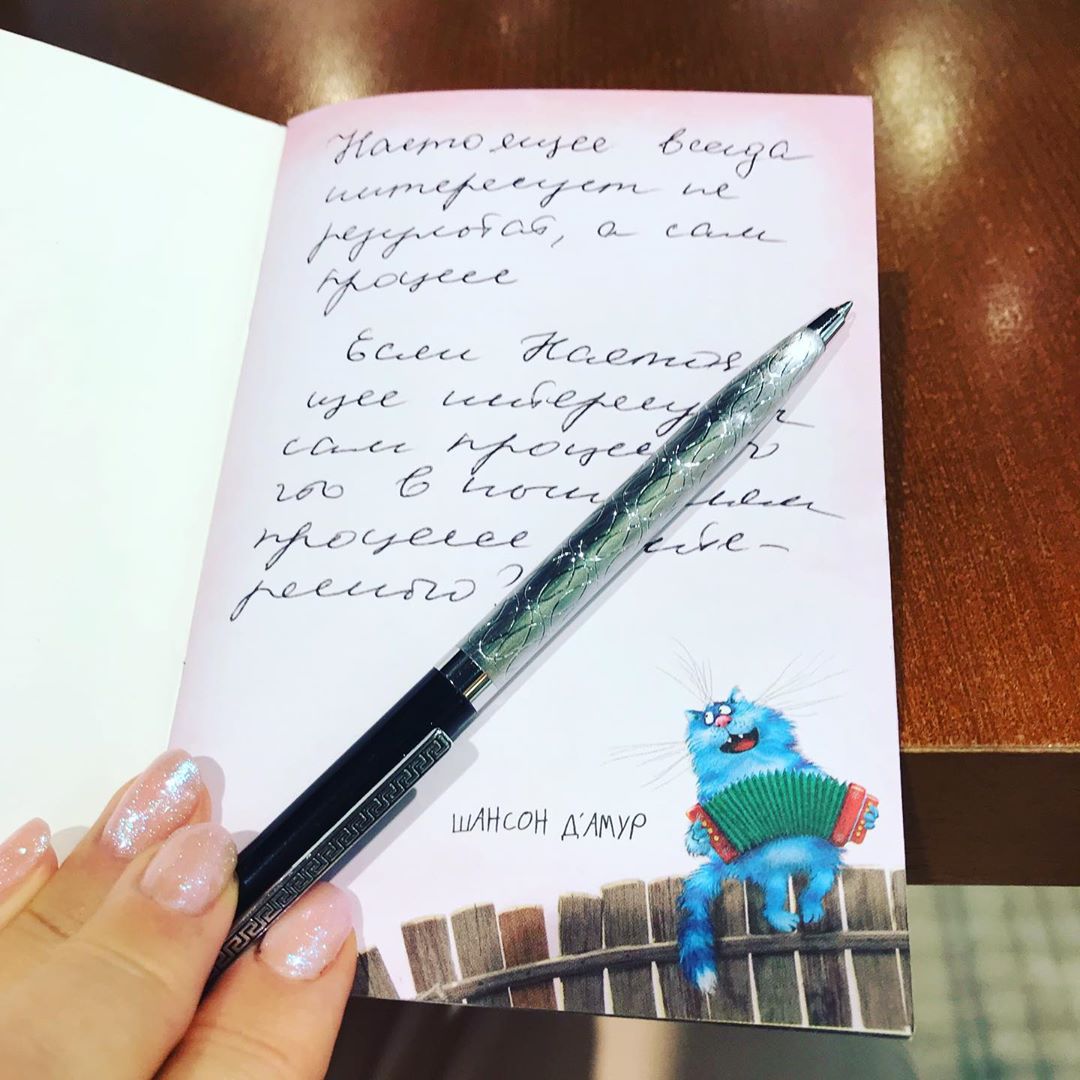 Настоящее всегда
интересует не
результат, а сам
процесс
Если Настоя
щее интересует
сам процесс,
то в
процессе инте-
ресного?
ШАНСОН Д'АМУР